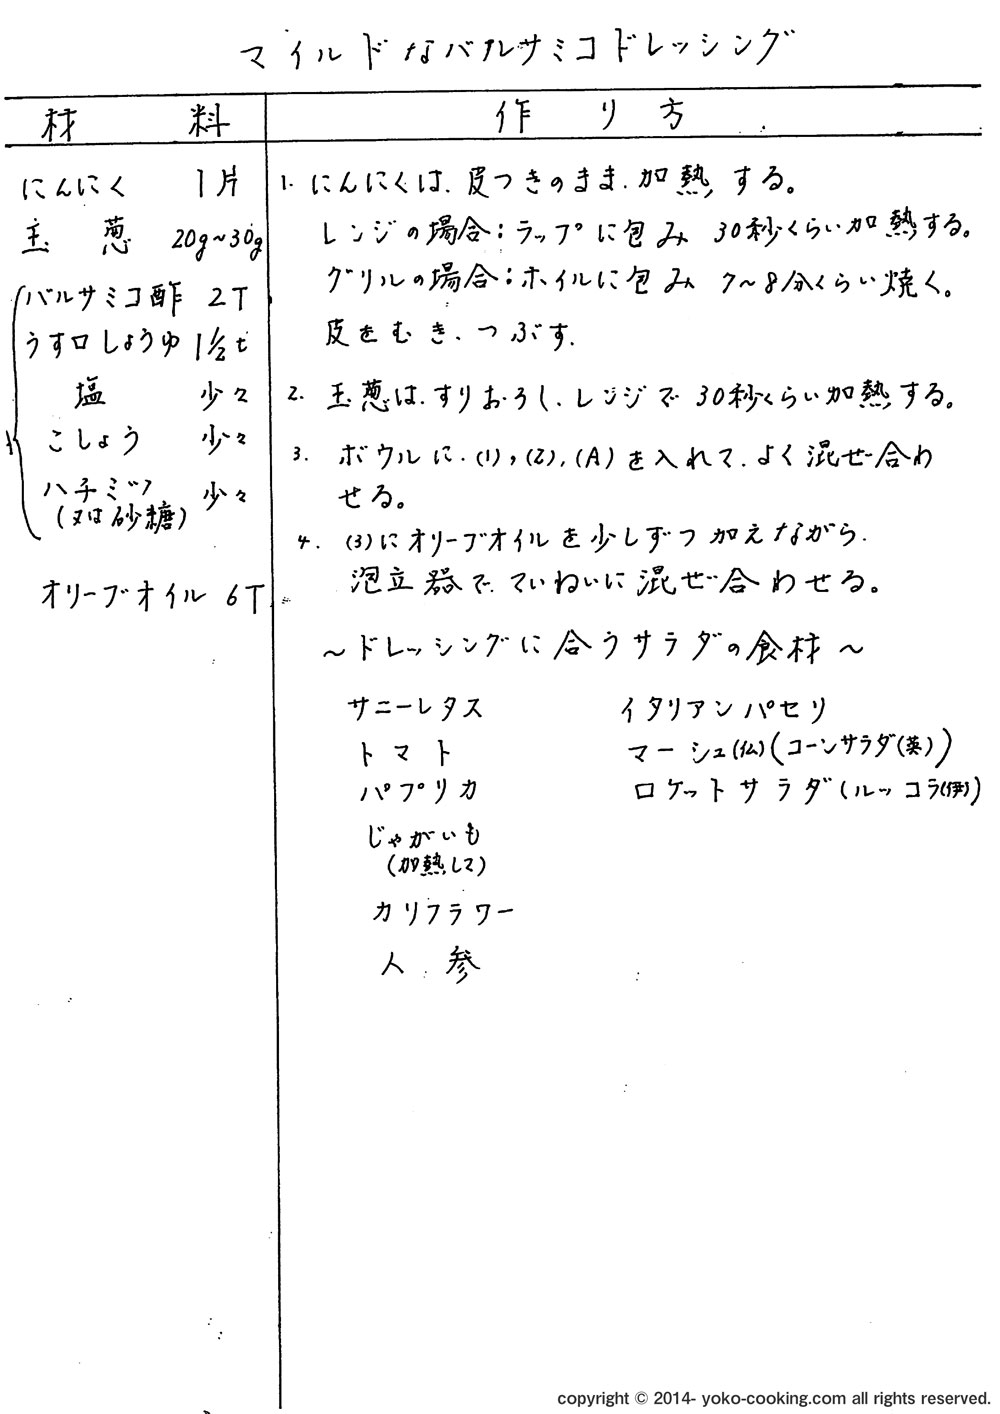 マイルドなバルサミコドレッシング
材料
作り方
にんにく 1片
玉葱 20g~30g
バルサミコ酢 2T
うす口しょうゆ 1½t
塩 少々
こしょう 少々
ハチミツ 少々
(又は砂糖)
オリーブオイル 6T
1. にんにくは、皮つきのまま、加熱する。
レンジの場合:ラップに包み 30秒くらい加熱する。
グリルの場合:ホイルに包み 7~8分くらい焼く。
皮をむき、つぶす。
2. 玉葱は、すりおろし、レンジで 30秒くらい加熱する。
3. ボウルに、(1),(2),(A)を入れて、よく混ぜ合わ
せる。
4. (3)にオリーブオイルを少しずつ加えながら、
泡立器で、ていねいに混ぜ合わせる。
~ドレッシングに合うサラダの食材~
サニーレタス
トマト
パプリカ
じゃがいも
(加熱して)
カリフラワー
人参
イタリアンパセリ
マーシュ(仏)(コーンサラダ(英))
ロケットサラダ(ルッコラ(伊))
copyright © 2014- yoko-cooking.com all rights reserved.